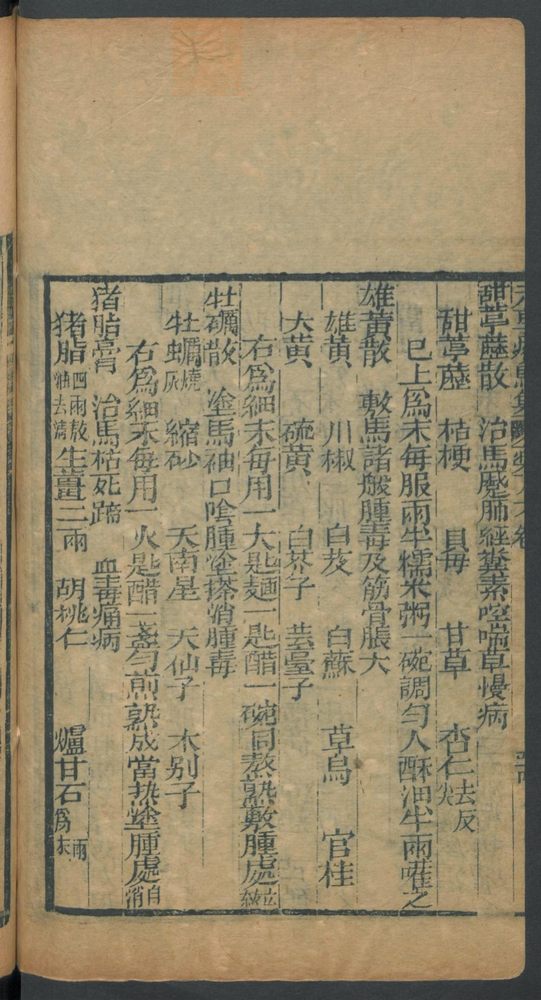 甜葶藶散　治馬𩨗肺經糞素啌喘草慢病
甜葶藶　桔梗　貝母　甘草　杏仁去皮尖
已上爲末每服兩半糯米粥一碗調勻入酥油半兩嚾之
雄黃散　敷馬諸般腫毒及筋骨脹大
雄黃　川椒　白芨　白蘇　草烏　官桂
大黃　硫黃　白芥子　芸薹子
右爲細末每用一大匙麵一匙醋一碗同熬熟敷腫處
牡礪散　塗馬袖口陰腫塗搽消腫毒
牡蠣燒灰　縮砂　天南星　天仙子　木别子
右爲細末每用一大匙醋一盞勻煎熟成膏热塗腫處自消
猪脂膏　治馬枯死蹄　血毒痛病
猪脂四兩熬油去滓　生薑二兩　胡桃仁　爐甘石